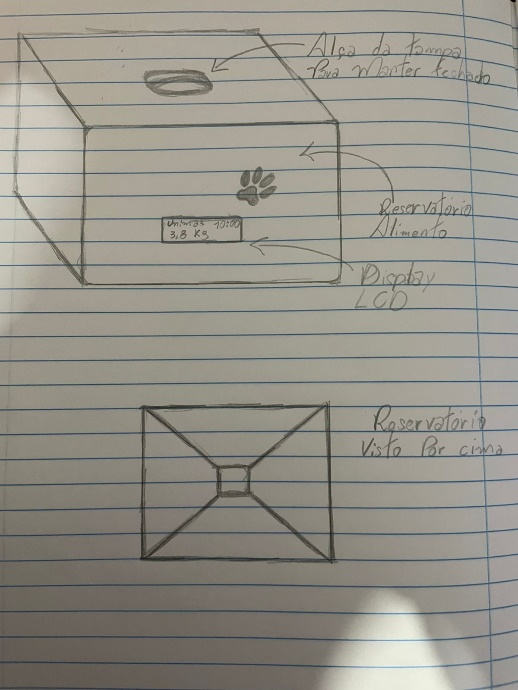 Alça da tampa
Para Manter fechado
Reservatório
Alimento
10:00
3,8 Kg
Display
LCD
Reservatório
Visto Por cima